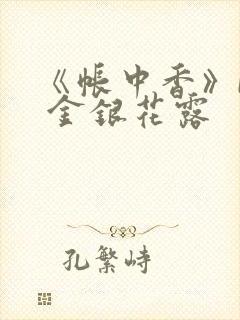 《帐中香》
金银花露
孔繁峙